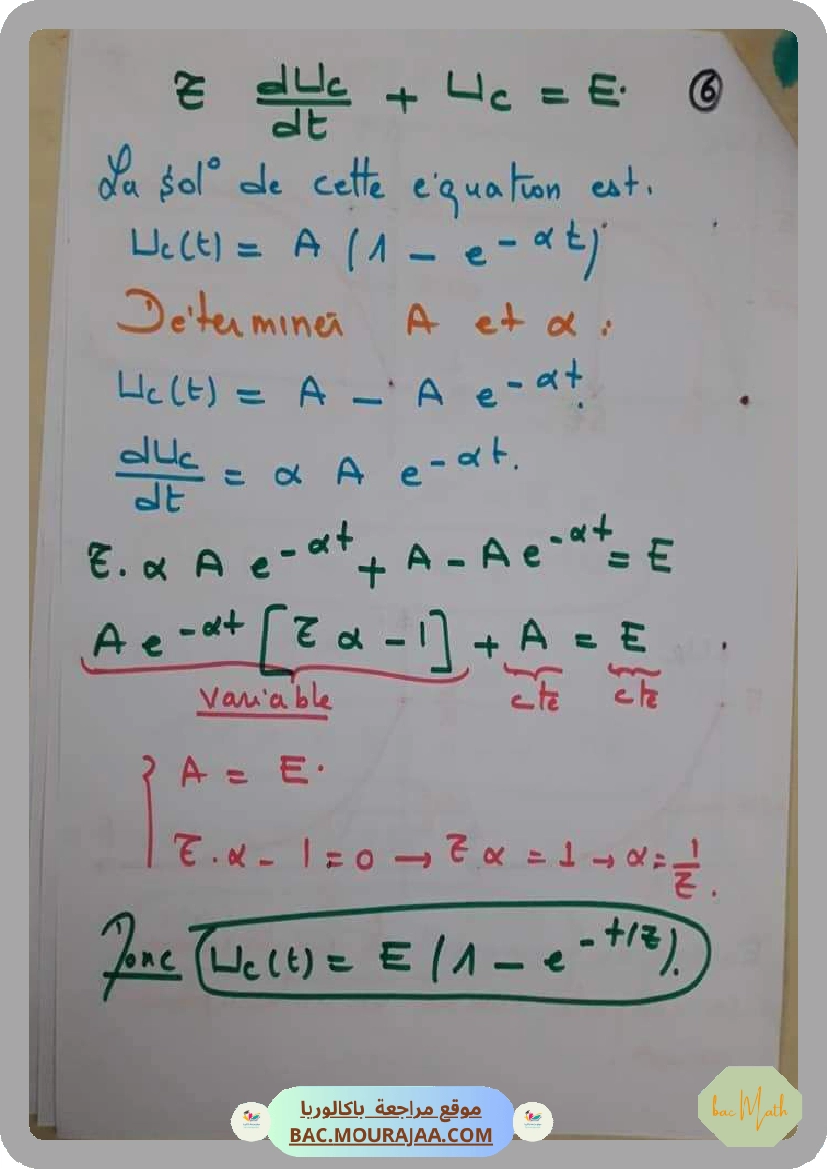 τ dUc/dt + Uc = E. ⑥
La sol° de cette équation est.
Uc(t) = A (1 - e^-αt)
Déterminer A et α :
Uc(t) = A - A e^-αt.
dUc/dt = α A e^-αt.
τ.α A e^-αt + A - A e^-αt = E
A e^-αt [τ α - 1] + A = E
variable cte cte
{ A = E.
τ.α - 1 = 0 → τ α = 1 → α = 1/τ.
Donc Uc(t) = E (1 - e^-t/τ).
موقع مراجعة باكالوريا
BAC.MOURAJAA.COM
bac Math